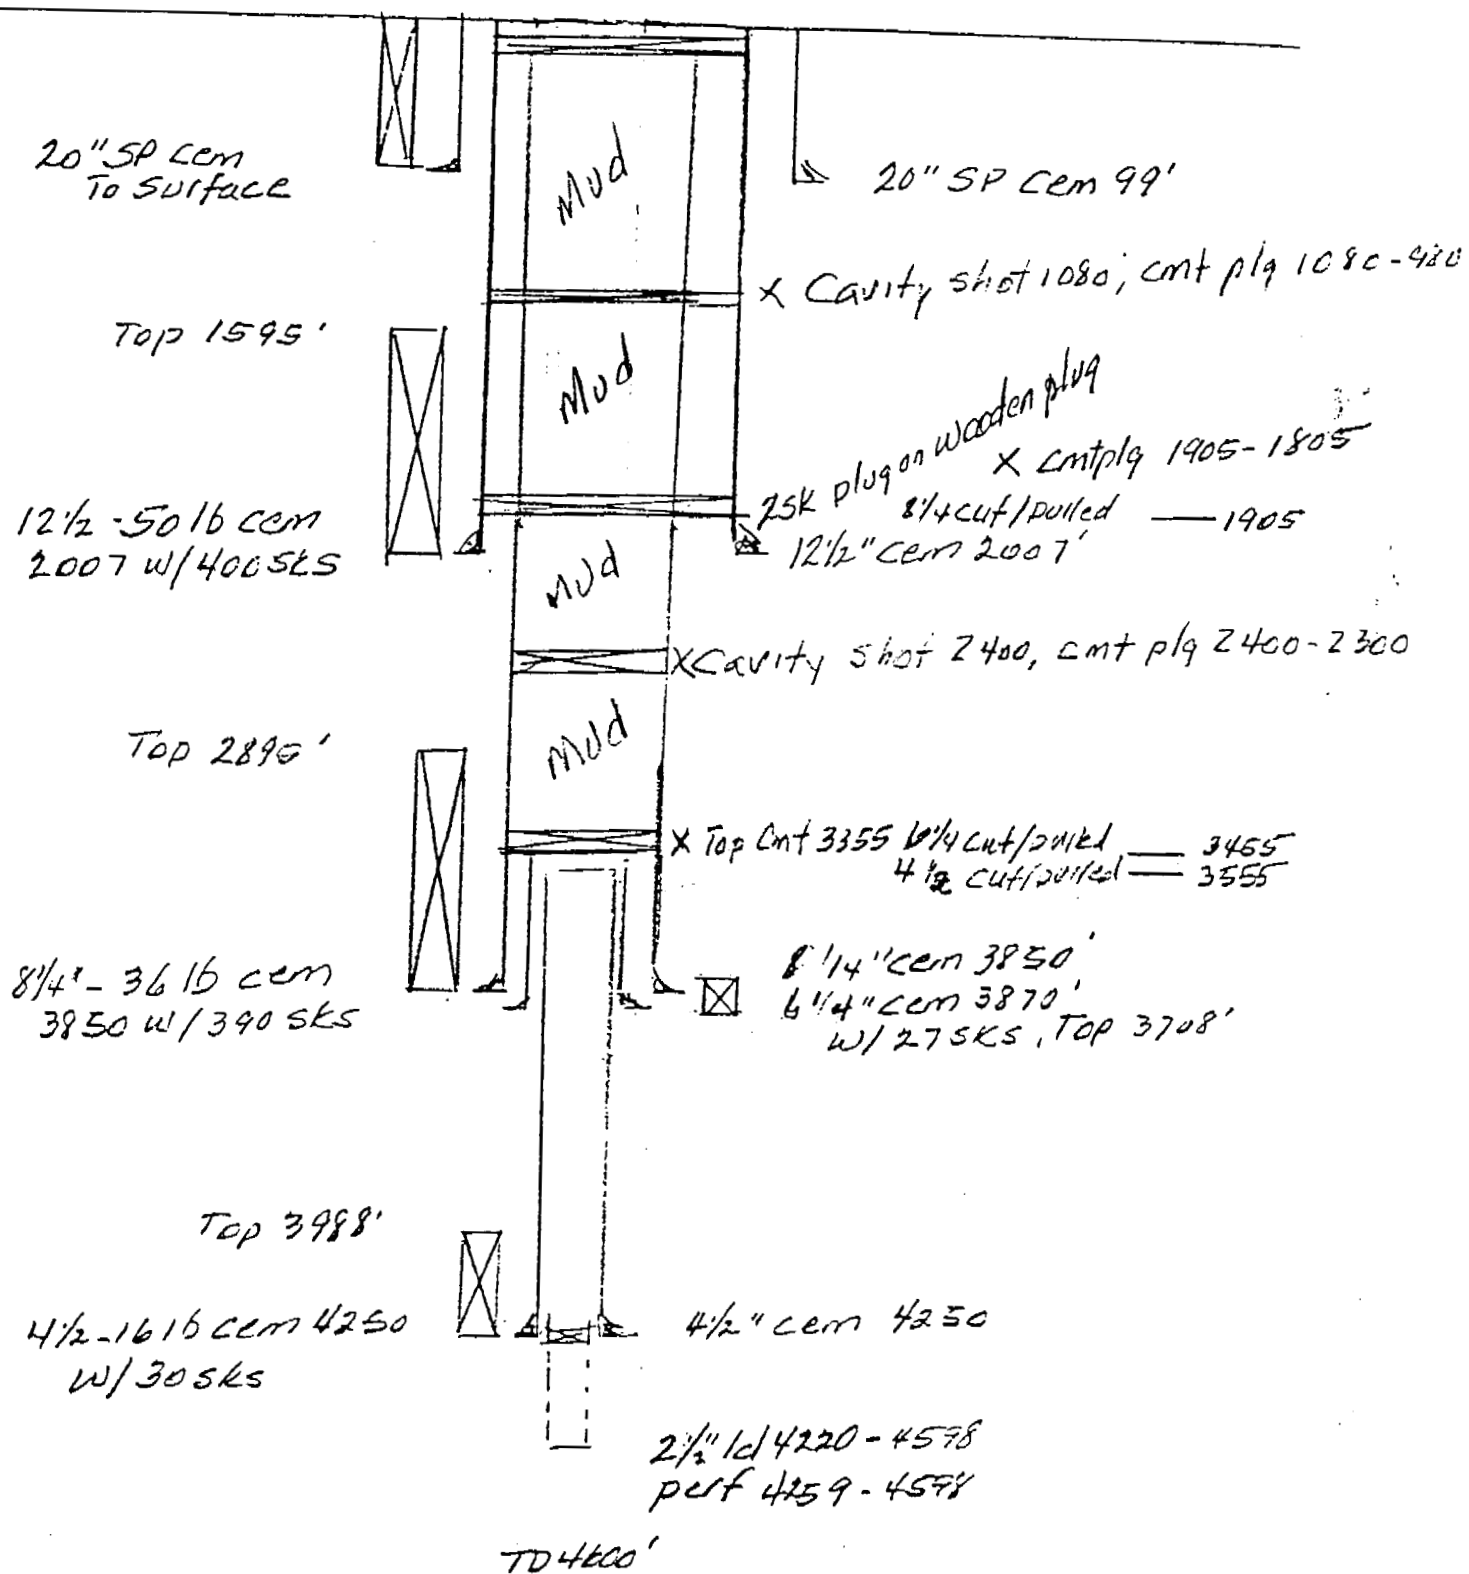 20" SP cem
To surface
20" SP cem 99'
Mud
X Cavity shot 1080, cmt plg 1080-980
Top 1595'
Mud
25K plug on wooden plug
X cmt plg 1905-1805
8 1/4 cut/pulled — 1905
12 1/2 - 50 lb cem
2007 w/400 sks
12 1/2" cem 2007'
Mud
X Cavity shot 2400, cmt plg 2400-2300
Mud
Top 2895'
X Top Cmt 3355 6 1/4 cut/pulled — 3455
4 1/2 cut/pulled — 3555
8 1/4" - 36 lb cem
3850 w/390 sks
8 1/4" cem 3850'
6 1/4" cem 3870'
w/27 sks, Top 3708'
Top 3988'
4 1/2 - 16 lb cem 4250
w/30 sks
4 1/2" cem 4250
2 1/2" ld 4220-4598
perf 4259-4598
TD 4600'